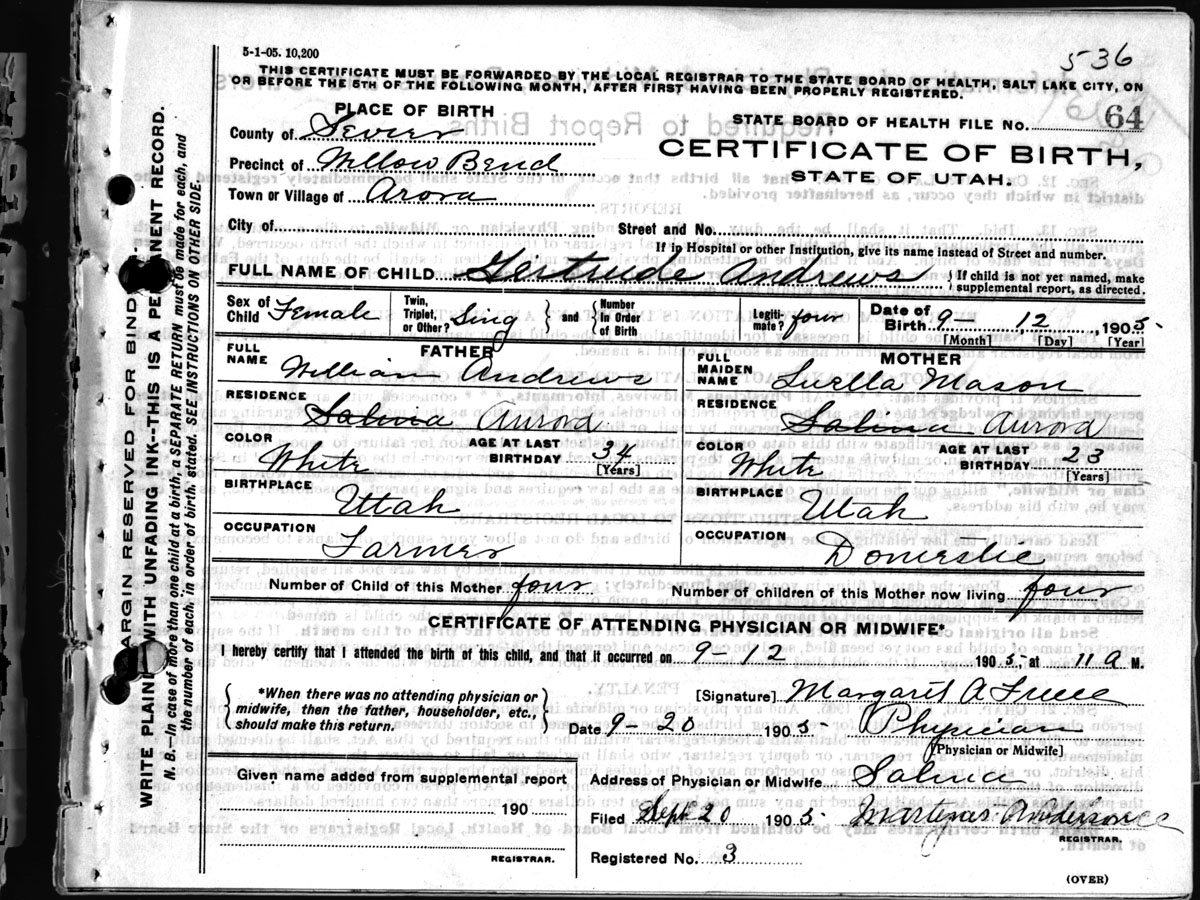 5-1-05. 10,200
536
THIS CERTIFICATE MUST BE FORWARDED BY THE LOCAL REGISTRAR TO THE STATE BOARD OF HEALTH, SALT LAKE CITY, ON
OR BEFORE THE 5TH OF THE FOLLOWING MONTH, AFTER FIRST HAVING BEEN PROPERLY REGISTERED.
PLACE OF BIRTH
County of Sevier
Precinct of Willow Bend
Town or Village of Arora
STATE BOARD OF HEALTH FILE No. 64
CERTIFICATE OF BIRTH,
STATE OF UTAH.
City of Street and No.
If in Hospital or other Institution, give its name instead of Street and number.
FULL NAME OF CHILD Gertrude Andrews { If child is not yet named, make
supplemental report, as directed.
Sex of Child Female Twin, Triplet, or Other? Sing } and { Number In Order of Birth Legiti-mate? four Date of Birth 9- 12 1905
[Month] [Day] [Year]
FATHER
FULL NAME William Andrews
RESIDENCE Salina Aurora
COLOR White AGE AT LAST BIRTHDAY 34
[Years]
BIRTHPLACE Uttah
OCCUPATION Farmer
MOTHER
FULL MAIDEN NAME Luella Mason
RESIDENCE Salina Aurora
COLOR White AGE AT LAST BIRTHDAY 23
[Years]
BIRTHPLACE Utah
OCCUPATION Domestic
Number of Child of this Mother four Number of children of this Mother now living four
CERTIFICATE OF ATTENDING PHYSICIAN OR MIDWIFE*
I hereby certify that I attended the birth of this child, and that it occurred on 9-12 1905, at 11 a M.
{ *When there was no attending physician or
midwife, then the father, householder, etc.,
should make this return. }
[Signature] Margaret A Freece
Date 9-20 1905 Physician
[Physician or Midwife]
Given name added from supplemental report
190
REGISTRAR.
Address of Physician or Midwife Salina
Filed Sept 20 1905
REGISTRAR.
Registered No. 3
(OVER)
MARGIN RESERVED FOR BINDING
WRITE PLAINLY WITH UNFADING INK--THIS IS A PERMANENT RECORD.
N. B.--In case of more than one child at a birth, a SEPARATE RETURN must be made for each, and
the number of each, in order of birth, stated. SEE INSTRUCTIONS ON OTHER SIDE.